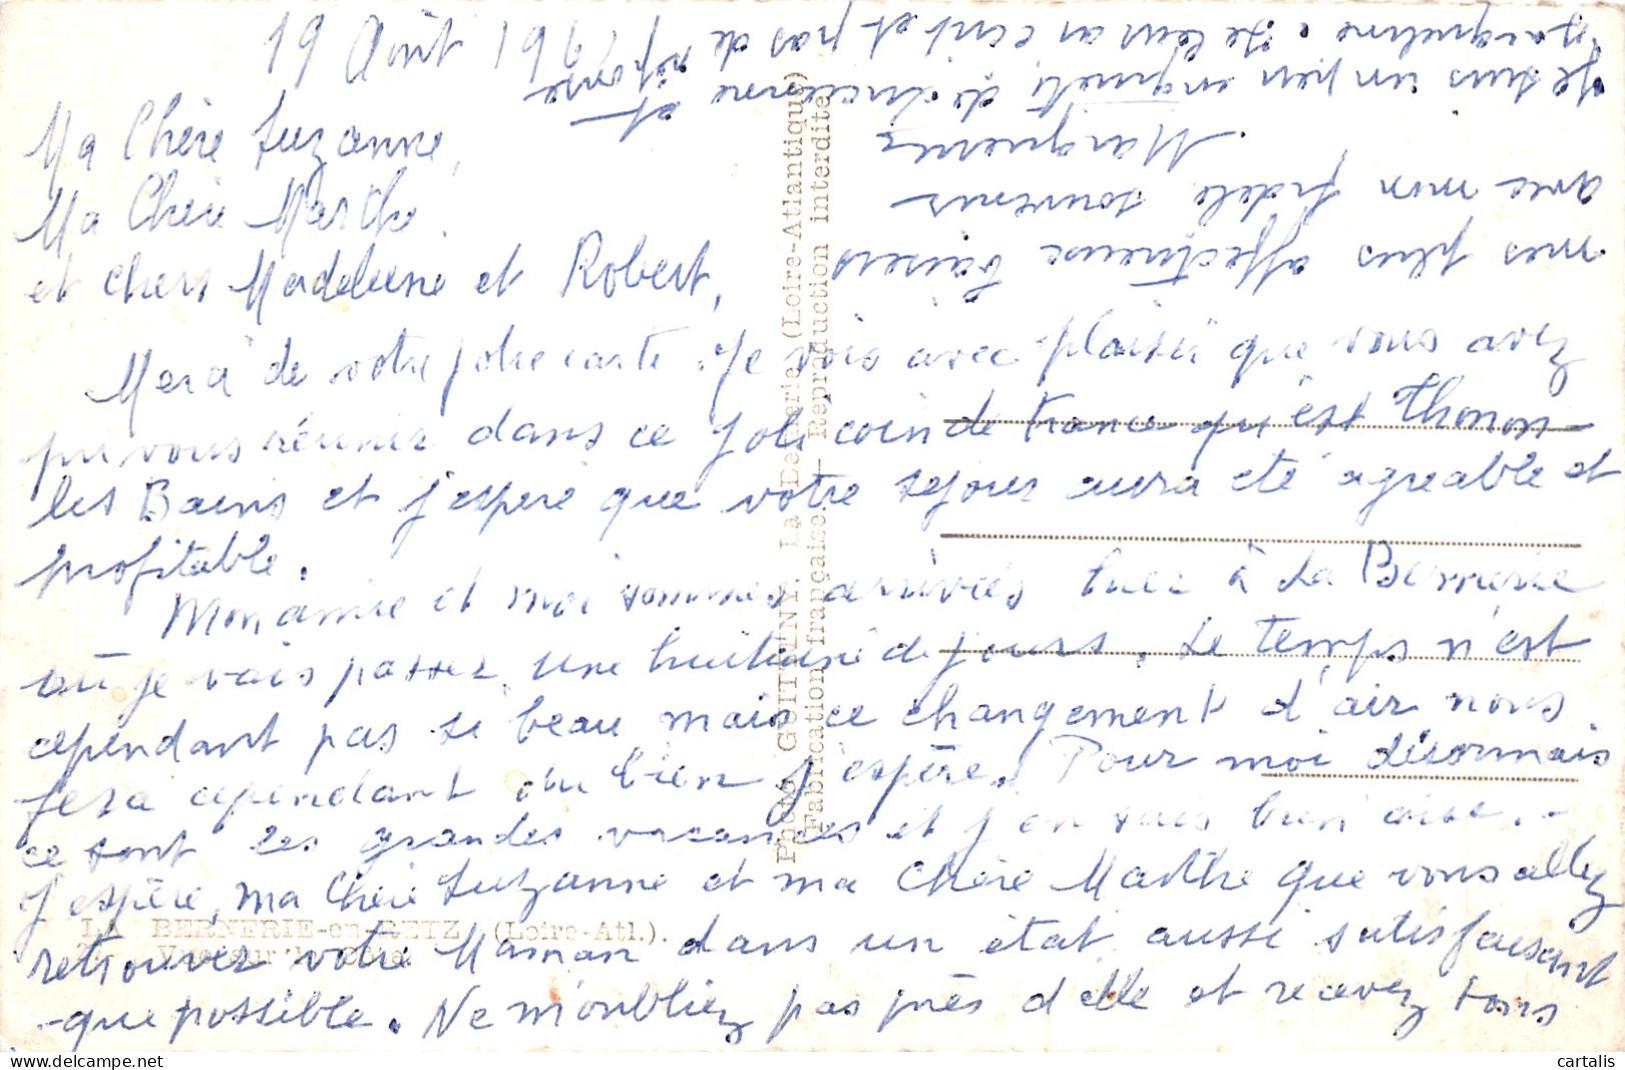 19 Août 196
Ma Chère Suzanne,
Ma Chère Marthe
et chers Madeleine et Robert,
Merci de votre jolie carte. Je vois avec plaisir que vous avez
pu vous réunir dans ce joli coin de France qu'est Thonon-
les Bains et j'espère que votre séjour aura été agréable et
profitable.
Mon amie et moi sommes arrivées hier à La Bernerie
où je vais passer une huitaine de jours. Le temps n'est
cependant pas si beau, mais ce changement d'air nous
fera cependant du bien j'espère. Pour moi désormais
ce sont les grandes vacances et j'en suis bien aise. -
J'espère, ma Chère Suzanne et ma Chère Marthe que vous allez
retrouver votre Maman dans un état aussi satisfaisant
que possible. Ne m'oubliez pas près d'elle et recevez tous
mes plus affectueux baisers
avec mon fidèle souvenir
Marguerite
Je suis un peu inquiète de Lucienne et
Jacqueline. Je leur ai écrit et pas de réponse
Photo GUITTENY, La Bernerie (Loire-Atlantique)
Fabrication française - Reproduction interdite
LA BERNERIE-en-RETZ (Loire-Atl.).
Vue sur la
cartalis